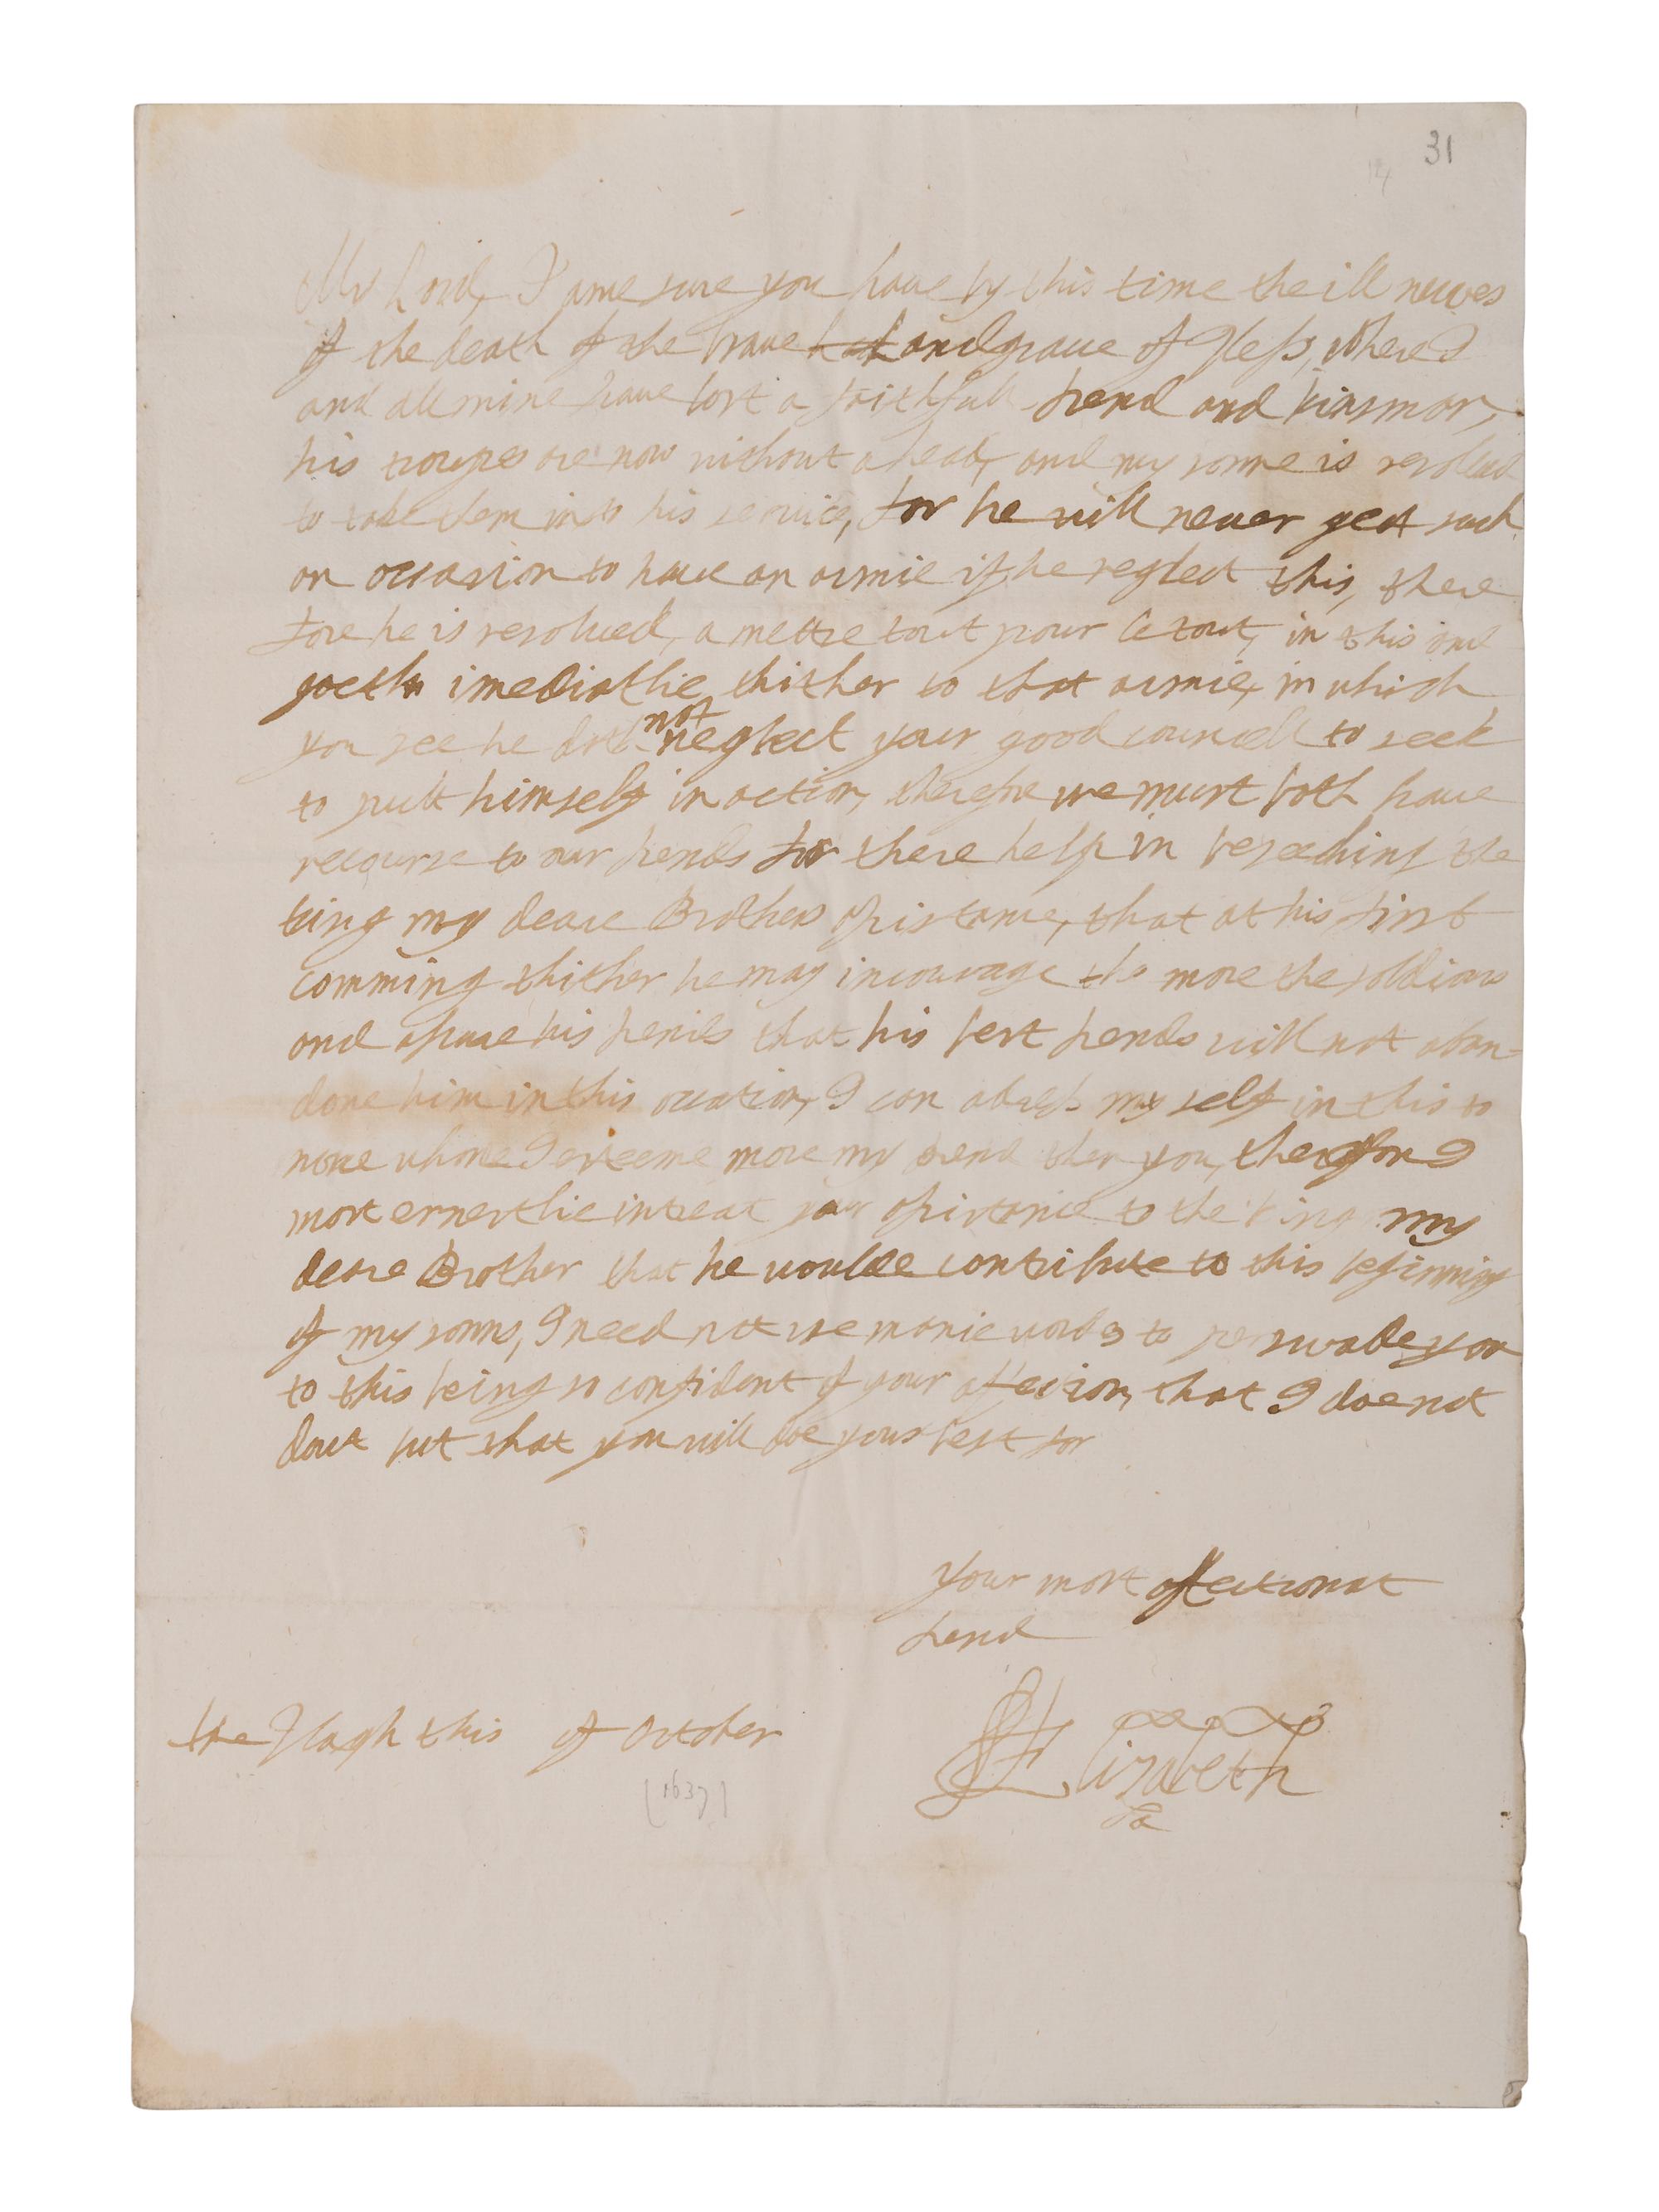 31
My Lord, I ame sure you haue by this time the ill newes
of the death of the braue Landgraue of Hess, where I
and all mine haue lost a faithfull frend and kinsman,
his troupes are now without a head, and my sonne is resolued
to take them into his seruice, for he will neuer gett such
an occasion to haue an armie if he neglect this, there
fore he is resolued, a mettre tout pour le tout, in this and
goeth imediatlie thither to that armie, in which
you see he doth not neglect your good councell to seek
to putt himself in action, therefore we must both haue
recourse to our frends for there help in beseeching the
king my deare Brothers assistance, that at his first
comming thither he may incourage the more the soldiars
and assure his frends that his best frends will not aban=
done him in this occation, I can adress my self in this to
none whome I esteeme more my frend then you, therefore I
most ernestlie intreat your assistance to the king my
deare Brother that he woulde contribute to this beginning
of my sonns, I need not use manie words to perswade you
to this being so confident of your affection, that I doe not
dout but that you will doe your best for
Your most affectionat
frend
Elizabeth
the Hagh this of October
(1637)